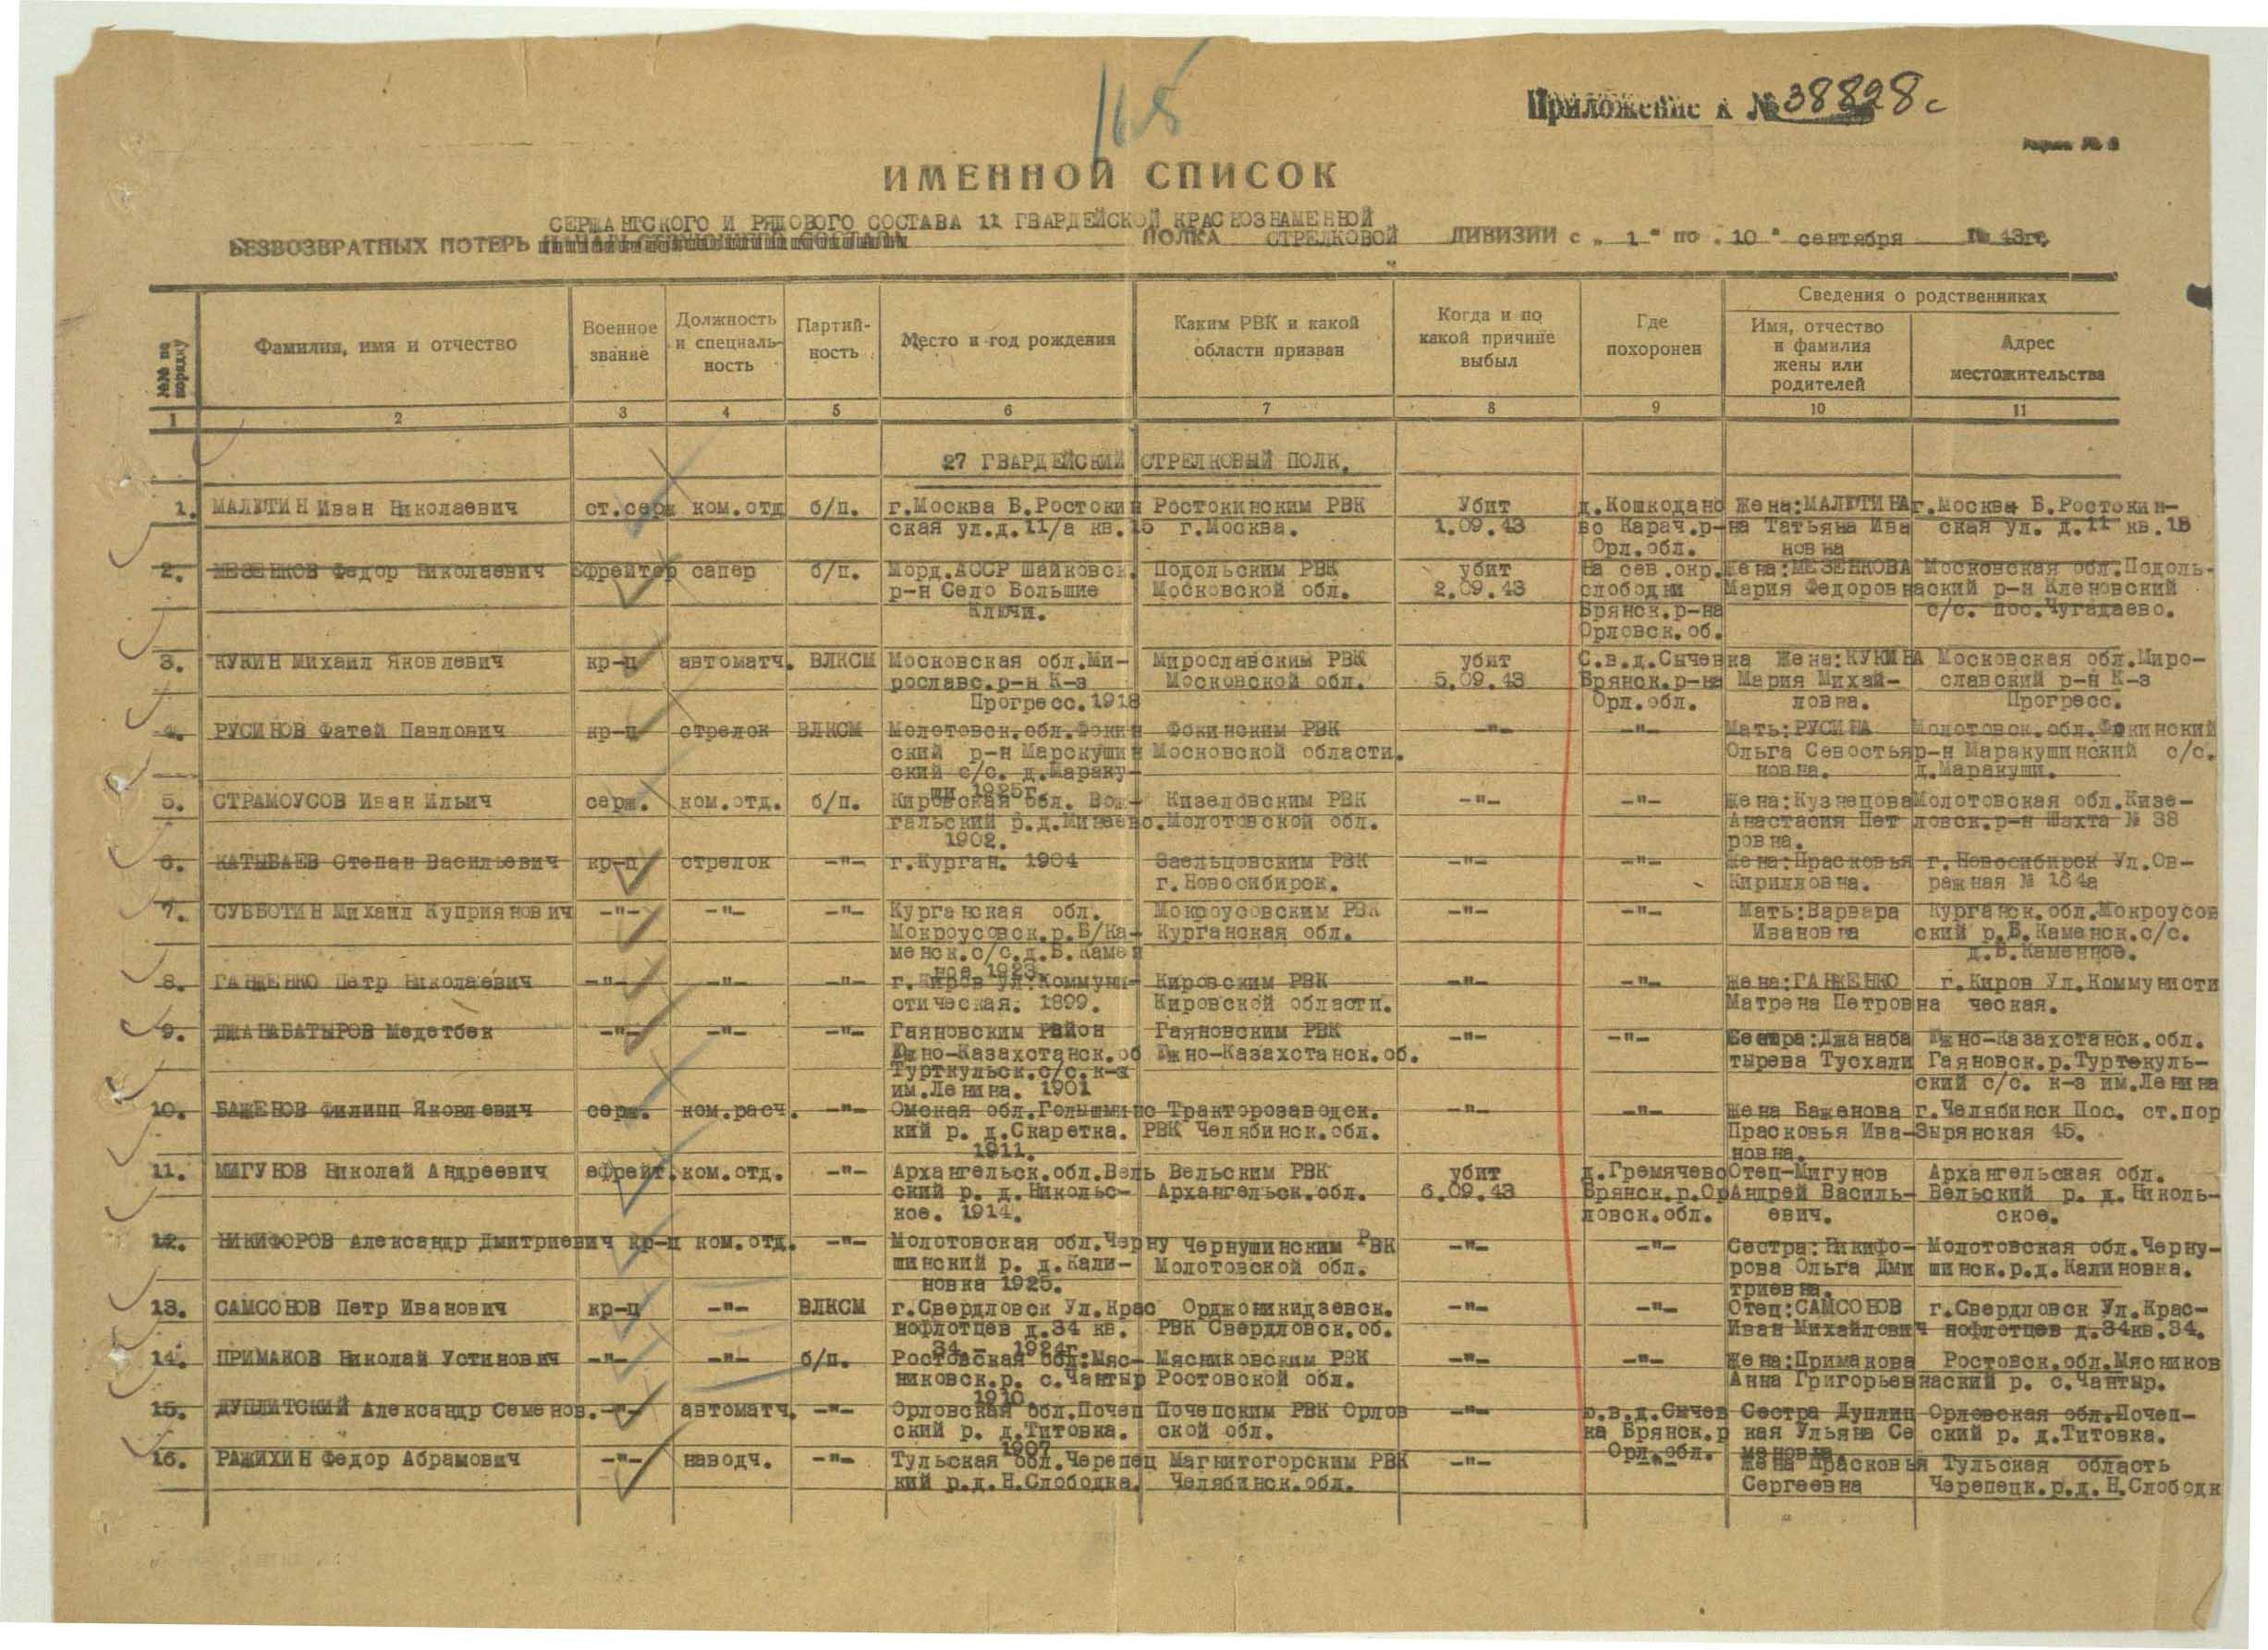 165
Приложение к № 38828с
ИМЕННОЙ СПИСОК
СЕРЖАНТСКОГО И РЯДОВОГО СОСТАВА 11 ГВАРДЕЙСКОЙ КРАСНОЗНАМЕННОЙ
БЕЗВОЗВРАТНЫХ ПОТЕРЬ ПОЛКА СТРЕЛКОВОЙ ДИВИЗИИ с „ 1 " по „ 10 " сентября 43г.
№№ по порядку
Фамилия, имя и отчество
Военное звание
Должность и специаль-ность
Партий-ность
Место и год рождения
Каким РВК и какой области призван
Когда и по какой причине выбыл
Где похоронен
Сведения о родственниках
Имя, отчество и фамилия жены или родителей
Адрес местожительства
1 2 3 4 5 6 7 8 9 10 11
27 ГВАРДЕЙСКИЙ СТРЕЛКОВЫЙ ПОЛК.
1. МАЛЮТИН Иван Николаевич ст.серж ком.отд б/п. г.Москва Б.Ростокин Ростокинским РВК Убит д.Кошкодано Жена:МАЛЮТИНА г.Москва Б.Ростокин-
ская ул.д.11/а кв.15 г.Москва. 1.09.43 во Карач.р-на Татьяна Ива ская ул. д.11 кв.15
Орл.обл. новна
2. МЕЗЕНКОВ Федор Николаевич Ефрейтор сапер б/п. Морд.АССР Шайковск. Подольским РВК убит На сев.окр. Жена:МЕЗЕНКОВА Московская обл.Подоль-
р-н Село Большие Московской обл. 2.09.43 слободки Мария Федоровна ский р-н Кленовский
Ключи. Брянск.р-на с/с. пос.Чугадаево.
Орловск.об.
3. КУКИН Михаил Яковлевич кр-ц автоматч. ВЛКСМ Московская обл.Ми- Мирославским РВК убит С.в.д.Сычевка Жена:КУКИНА Московская обл.Миро-
рославс.р-н К-з Московской обл. 5.09.43 Брянск.р-на Мария Михай- славский р-н К-з
Прогресс.1918 Орл.обл. ловна. Прогресс.
4. РУСИНОВ Фатей Павлович кр-ц стрелок ВЛКСМ Молотовск.обл.Фокин Фокинским РВК -"- -"- Мать:РУСИНА Молотовск.обл.Фокинский
ский р-н Марокушин Московской области. Ольга Севостья р-н Маракушинский с/с.
ский с/с. д.Мараку- новна. д.Маракуши.
ши 1925г.
5. СТРАМОУСОВ Иван Ильич серж. ком.отд. б/п. Кировская обл. Вож- Кизеловским РВК -"- -"- Жена:Кузнецова Молотовская обл.Кизе-
гальский р.д.Минеево. Молотовской обл. Анастасия Пет ловск.р-н Шахта № 38
1902. ровна.
6. КАТЫВАЕВ Степан Васильевич кр-ц стрелок -"- г.Курган. 1904 Заельцовским РВК -"- -"- Жена:Прасковья г.Новосибирск Ул.Ов-
г.Новосибирск. Кирилловна. ражная № 164а
7. СУББОТИН Михаил Куприянович -"- -"- -"- Курганская обл. Мокроусовским РВК -"- -"- Мать:Варвара Курганск.обл.Мокроусов
Мокроусовск.р.Б/Ка- Курганская обл. Ивановна ский р.Б.Каменск.с/с.
менск.с/с.д.Б.Камен д.Б.Каменное.
ное 1923.
8. ГАНЖЕНКО Петр Николаевич -"- -"- -"- г.Киров ул.Коммуни- Кировским РВК -"- -"- Жена:ГАНЖЕНКО г.Киров Ул.Коммунисти
стическая. 1899. Кировской области. Матрена Петровна ческая.
9. ДЖАНАБАТЫРОВ Медетбек -"- -"- -"- Гаяновским район Гаяновским РВК -"- -"- Сестра:Джанаба Южно-Казахстанск.обл.
Южно-Казахстанск.об Южно-Казахстанск.об. тырева Тусхали Гаяновск.р.Туртекуль-
Турткульск.с/с.к-з ский с/с. к-з им.Ленина
им.Ленина. 1901
10. БАЖЕНОВ Филипп Яковлевич серж. ком.расч. -"- Омская обл.Голышманс Тракторозаводск. -"- -"- Жена Баженова г.Челябинск Пос. ст.пор
кий р. д.Скаретка. РВК Челябинск.обл. Прасковья Ива- Зырянская 45.
1911. новна.
11. МИГУНОВ Николай Андреевич ефрейт. ком.отд. -"- Архангельск.обл.Вель Вельским РВК убит д.Гремячево Отец-Мигунов Архангельская обл.
ский р. д.Никольс- Архангельск.обл. 6.09.43 Брянск.р.Ор Андрей Василь- Вельский р. д.Николь-
кое. 1914. ловск.обл. евич. ское.
12. НИКИФОРОВ Александр Дмитриевич кр-ц ком.отд. -"- Молотовская обл.Черну Чернушинским РВК -"- -"- Сестра:Никифо- Молотовская обл.Черну-
шинский р. д.Кали- Молотовской обл. рова Ольга Дми шинск.р.д.Калиновка.
новка 1925. триевна.
13. САМСОНОВ Петр Иванович кр-ц -"- ВЛКСМ г.Свердловск Ул.Крас Орджоникидзевск. -"- -"- Отец:САМСОНОВ г.Свердловск Ул.Крас-
нофлотцев д.34 кв. РВК Свердловск.об. Иван Михайлович нофлотцев д.34кв.34.
34 - 1924г.
14. ПРИМАКОВ Николай Устинович -"- -"- б/п. Ростовская обл:Мяс- Мясниковским РВК -"- -"- Жена:Примакова Ростовск.обл.Мясников
никовск.р. с.Чантыр Ростовской обл. Анна Григорьевна ский р. с.Чантыр.
1910
15. ДУПЛИТСКИЙ Александр Семенов. -"- автоматч. -"- Орловская обл.Почеп Почепским РВК Орлов -"- ю.в.д.Сычев Сестра Дуплиц Орловская обл.Почеп-
ский р. д.Титовка. ской обл. ка Брянск.р кая Ульяна Се ский р. д.Титовка.
1907 Орл.обл. меновна.
16. РАЖИХИН Федор Абрамович -"- наводч. -"- Тульская обл.Черепец Магнитогорским РВК -"- Жена Прасковья Тульская область
кий р.д.Н.Слободка. Челябинск.обл. Сергеевна Черепецк.р.д. Н.Слободк